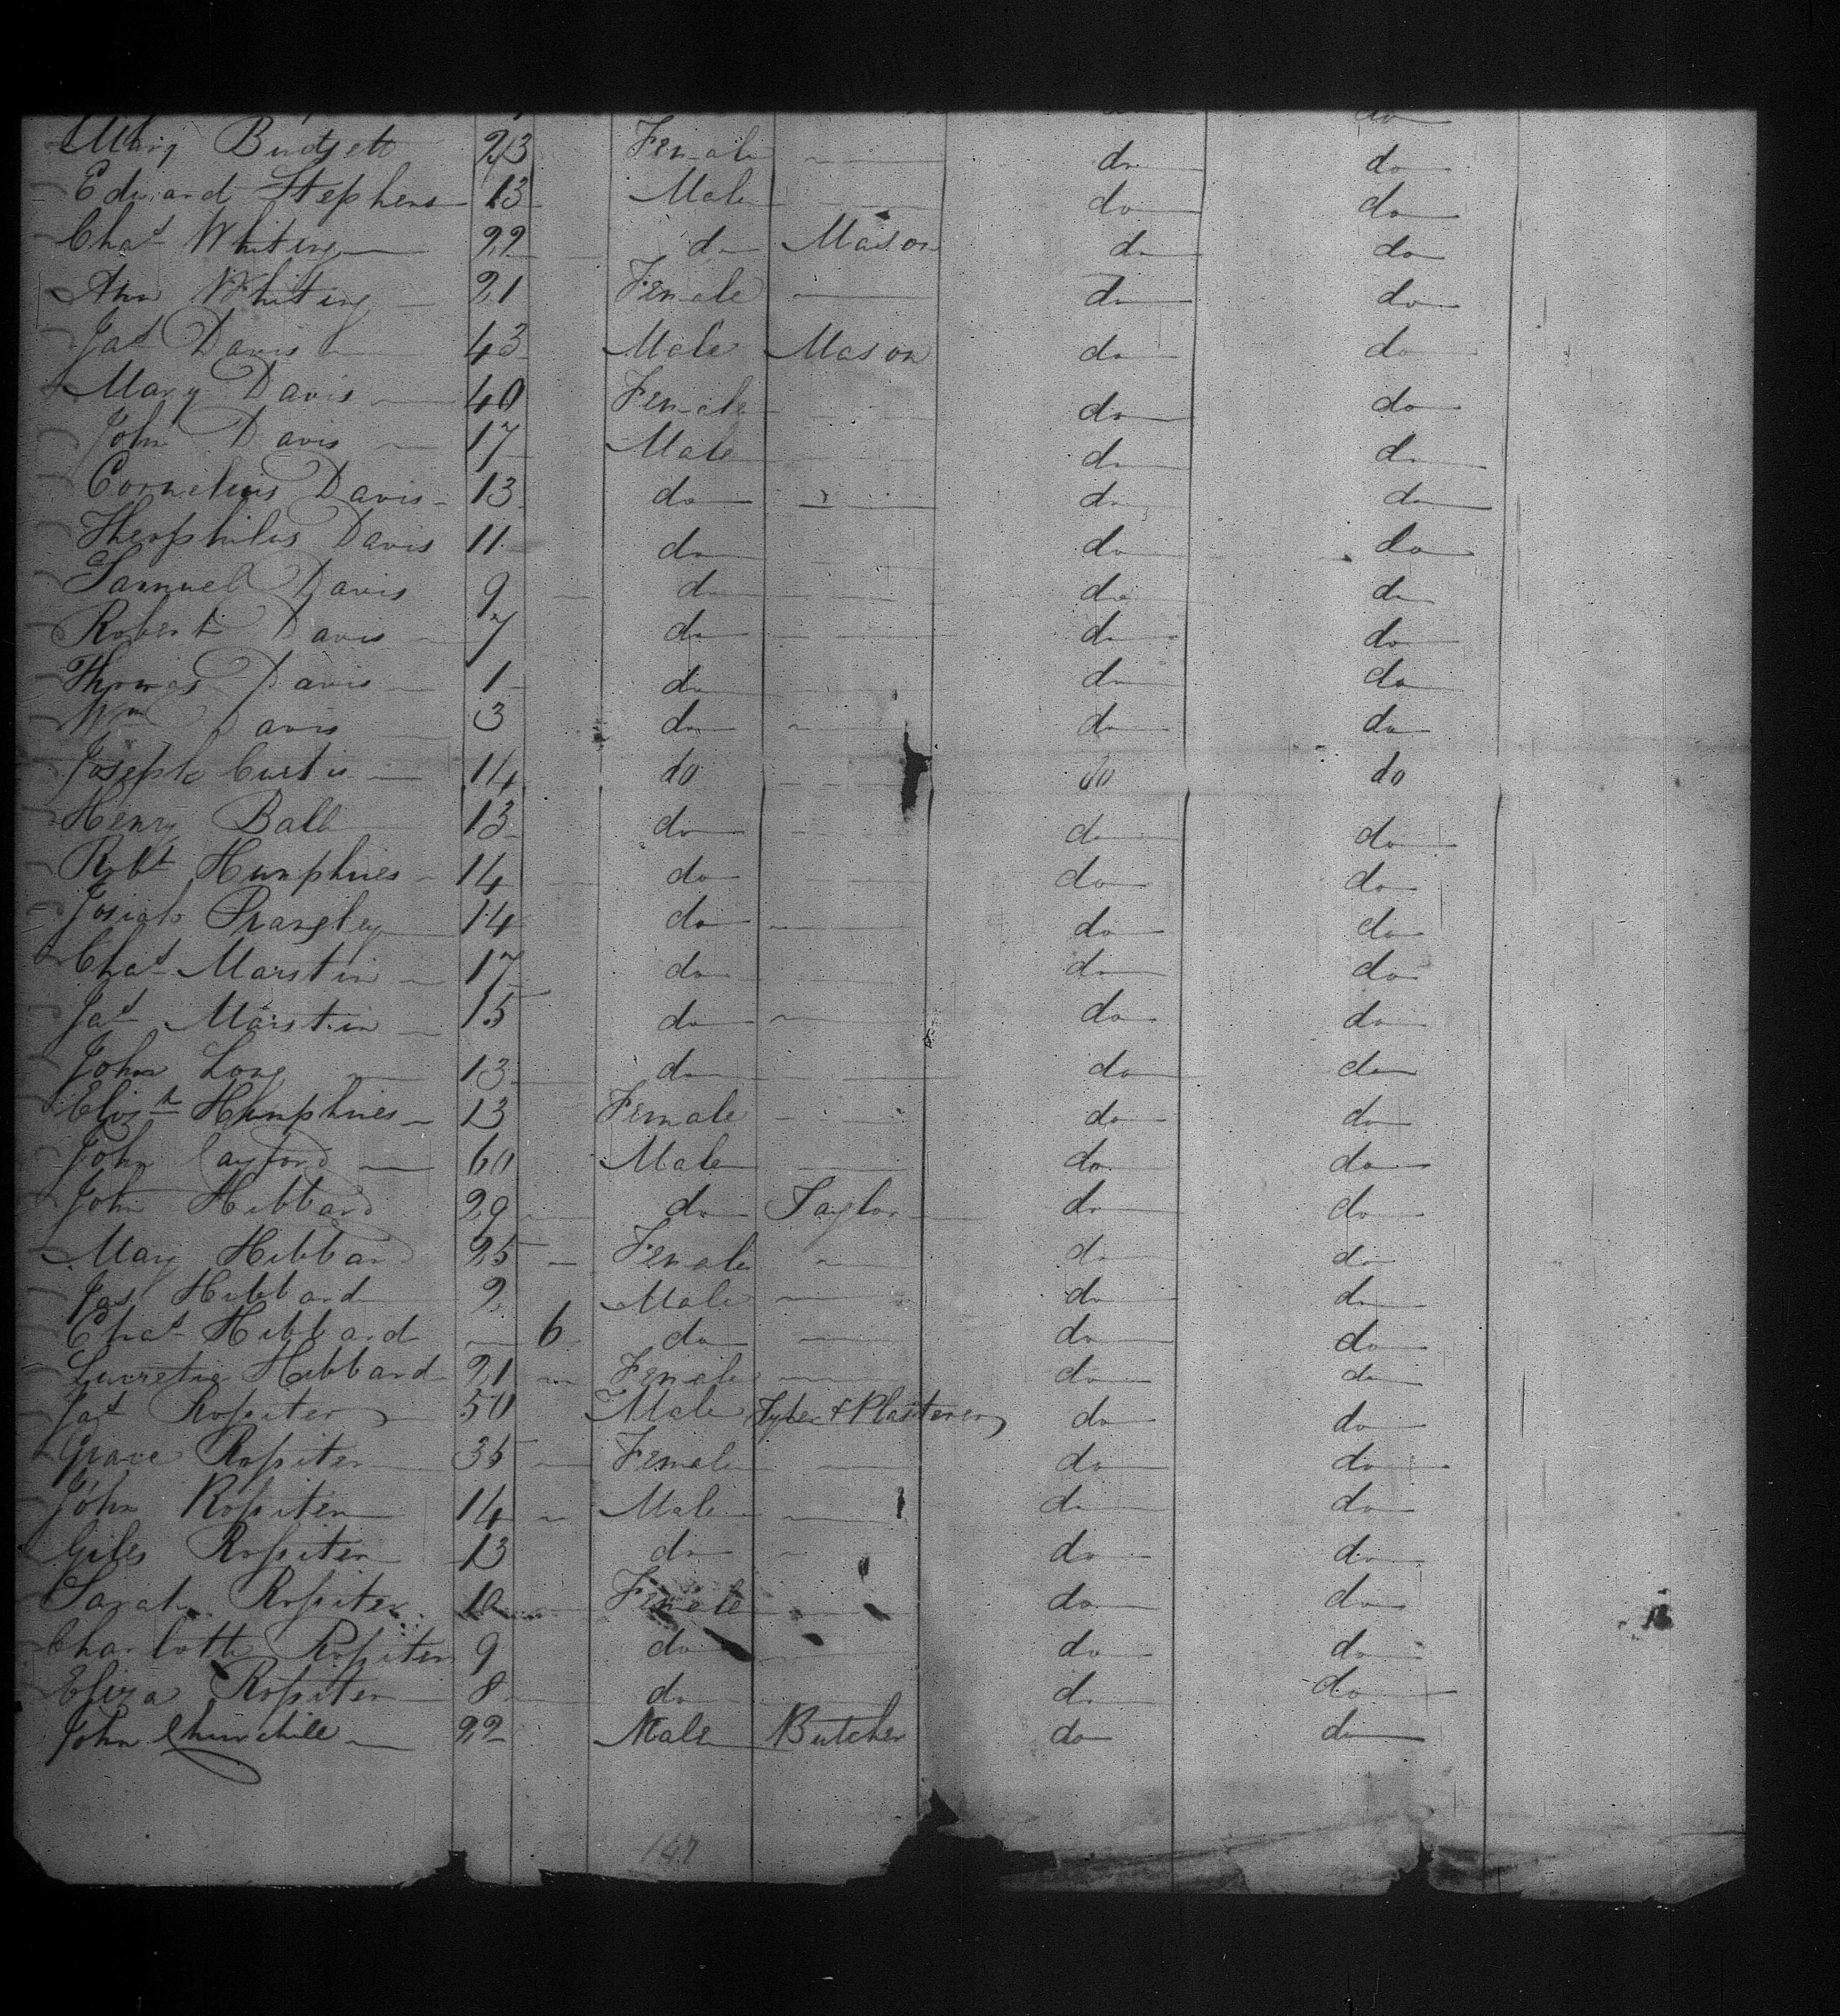 do
Mary Budgett 23 Female — do do
Edward Stephens 13 Male — do do
Chas Whiting 22 do Mason do do
Ann Whiting 21 Female — do do
Jas Davis 43 Male Mason do do
Mary Davis 40 Female — do do
John Davis 17 Male — do do
Cornelius Davis 13 do — do do
Theophilus Davis 11 do — do do
Samuel Davis 9 do — do do
Robert Davis 7 do — do do
Thomas Davis 1 do — do do
Wm Davis 3 do — do do
Joseph Curtis 14 do — do do
Henry Ball 13 do — do do
Robt Humphries 14 do — do do
Josiah Prangley 14 do — do do
Chas Marstin 17 do — do do
Jas Marstin 15 do — do do
John Long 13 do — do do
Elizth Humphries 13 Female — do do
John 60 Male — do do
John Hibbard 29 do Taylor do do
Mary Hibbard 25 Female — do do
Jas Hibbard 2 Male — do do
Chas Hibbard — 6 do — do do
Lucretia Hibbard 21 Female — do do
Jas Rossiter 50 Male Tyler & Plasterer do do
Grace Rossiter 35 Female — do do
John Rossiter 14 Male — do do
Giles Rossiter 13 do — do do
Sarah Rossiter 10 Female — do do
Charlotte Rossiter 9 do — do do
Eliza Rossiter 8 do — do do
John Churchill 22 Male Butcher do do
167